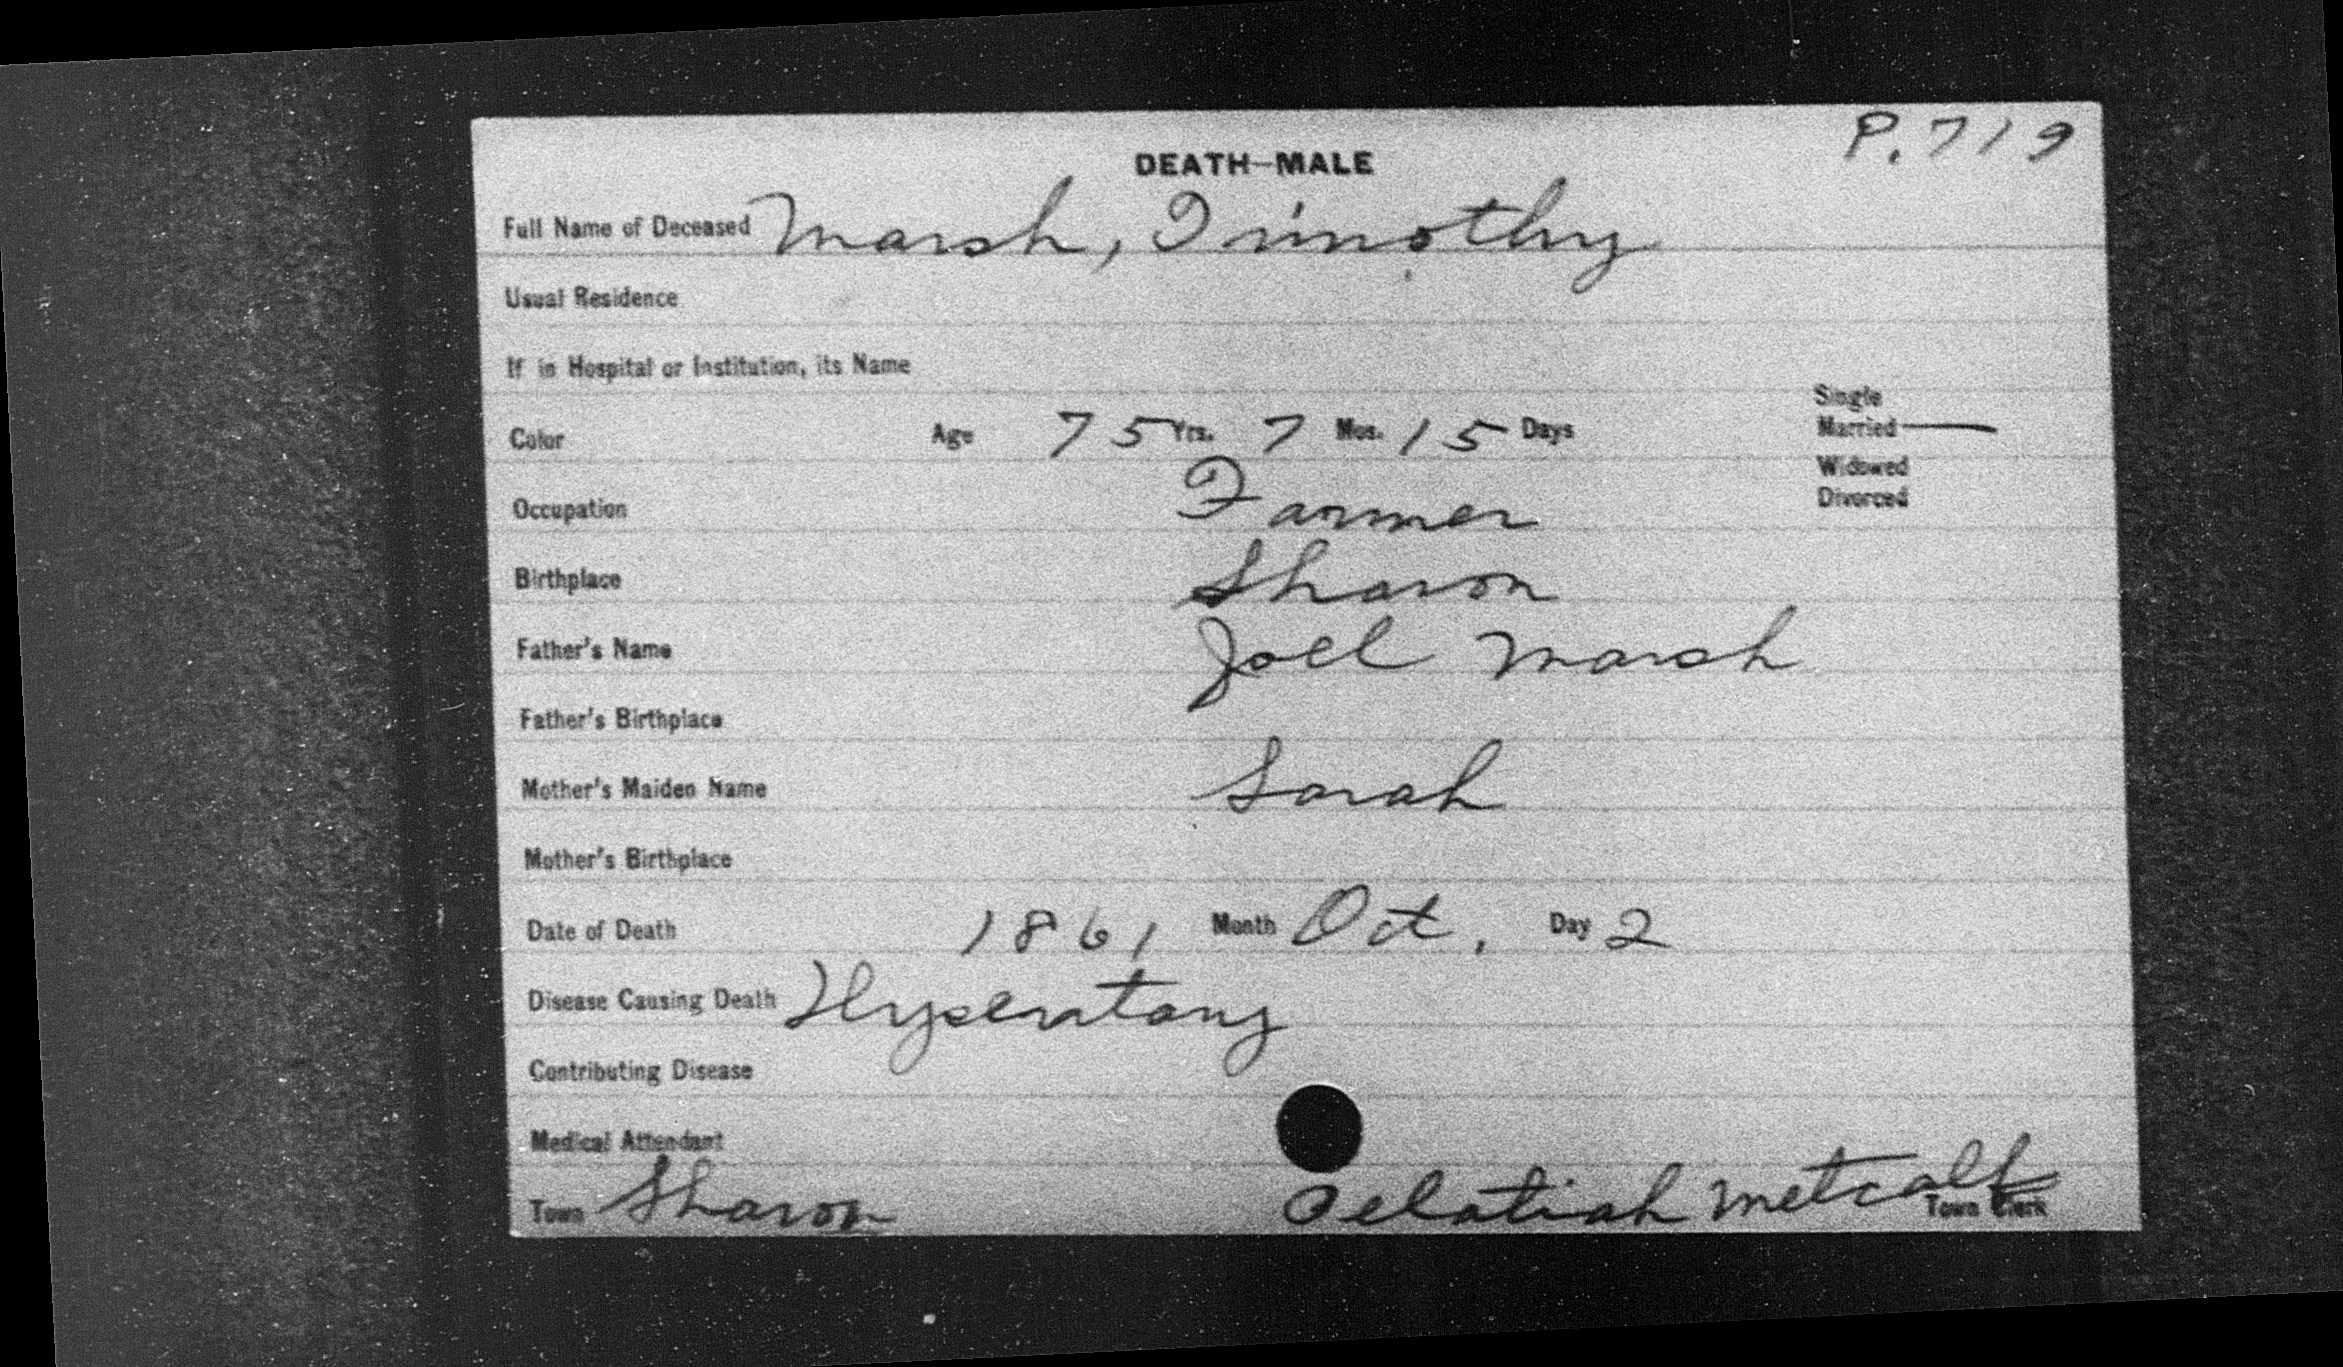 P. 719
DEATH—MALE
Full Name of Deceased Marsh, Timothy
Usual Residence
If in Hospital or Institution, its Name
Single
Color Age 75 Yrs. 7 Mos. 15 Days Married —
Widowed
Occupation Farmer Divorced
Birthplace Sharon
Father's Name Joel Marsh
Father's Birthplace
Mother's Maiden Name Sarah
Mother's Birthplace
Date of Death 1861 Month Oct. Day 2
Disease Causing Death
Contributing Disease
Medical Attendant
Town Sharon Pelatiah Metcalf Town Clerk